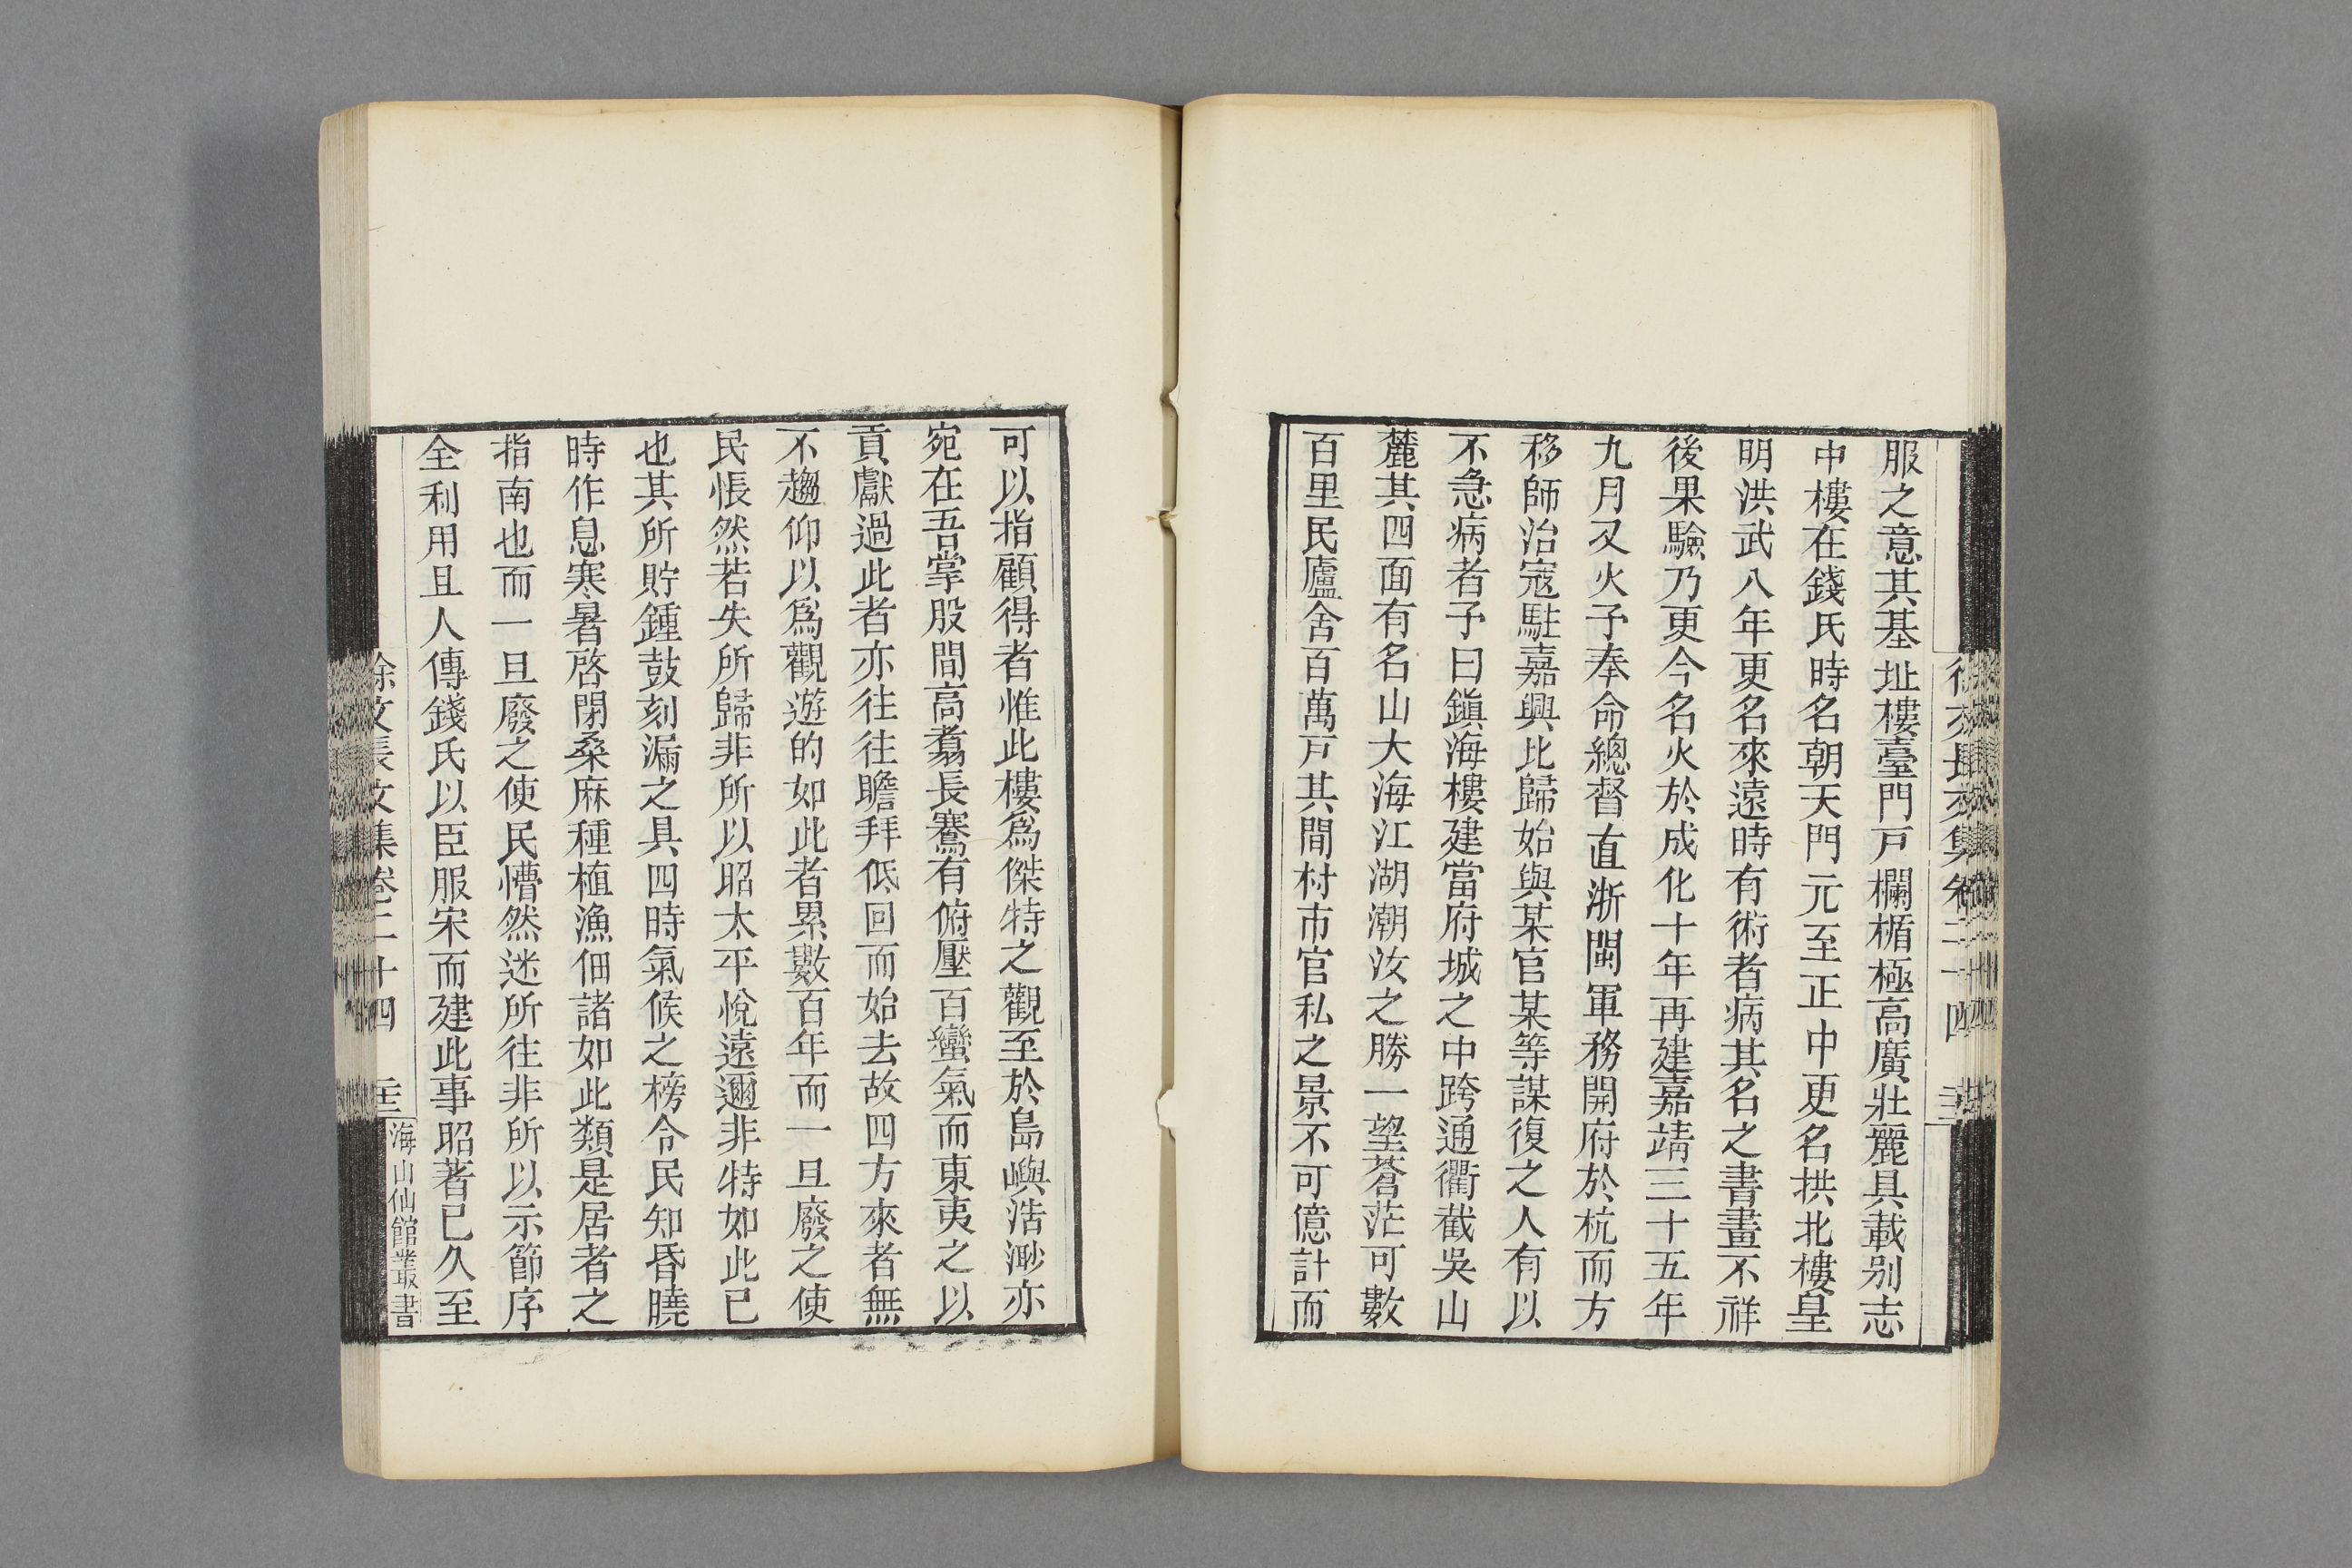 服之意其基址樓臺門戸欄楯極高廣壯麗具載别志
中樓在錢氏時名朝天門元至正中更名拱北樓皇
明洪武八年更名來遠時有術者病其名之書畫不祥
後果驗乃更今名火於成化十年再建嘉靖三十五年
九月又火予奉命總督直浙閩軍務開府於杭而方
移師治寇駐嘉興比歸始與某官某等謀復之人有以
不急病者予曰鎭海樓建當府城之中跨通衢截吳山
麓其四面有名山大海江湖潮汝之勝一望蒼茫可數
百里民廬舍百萬戸其間村市官私之景不可億計而
可以指顧得者惟此樓爲傑特之觀至於島嶼浩渺亦
宛在吾掌股間高翥長騫有俯壓百蠻氣而東夷之以
貢獻過此者亦往往瞻拜低回而始去故四方來者無
不趨仰以爲觀遊的如此者累數百年而一旦廢之使
民悵然若失所歸非所以昭太平悅遠邇非特如此已
也其所貯鍾鼓刻漏之具四時氣候之榜令民知昏曉
時作息寒暑啓閉桑麻種植漁佃諸如此類是居者之
指南也而一旦廢之使民懵然迷所往非所以示節序
全利用且人傳錢氏以臣服宋而建此事昭著已久至
徐文長文集卷二十四
海山仙館叢書